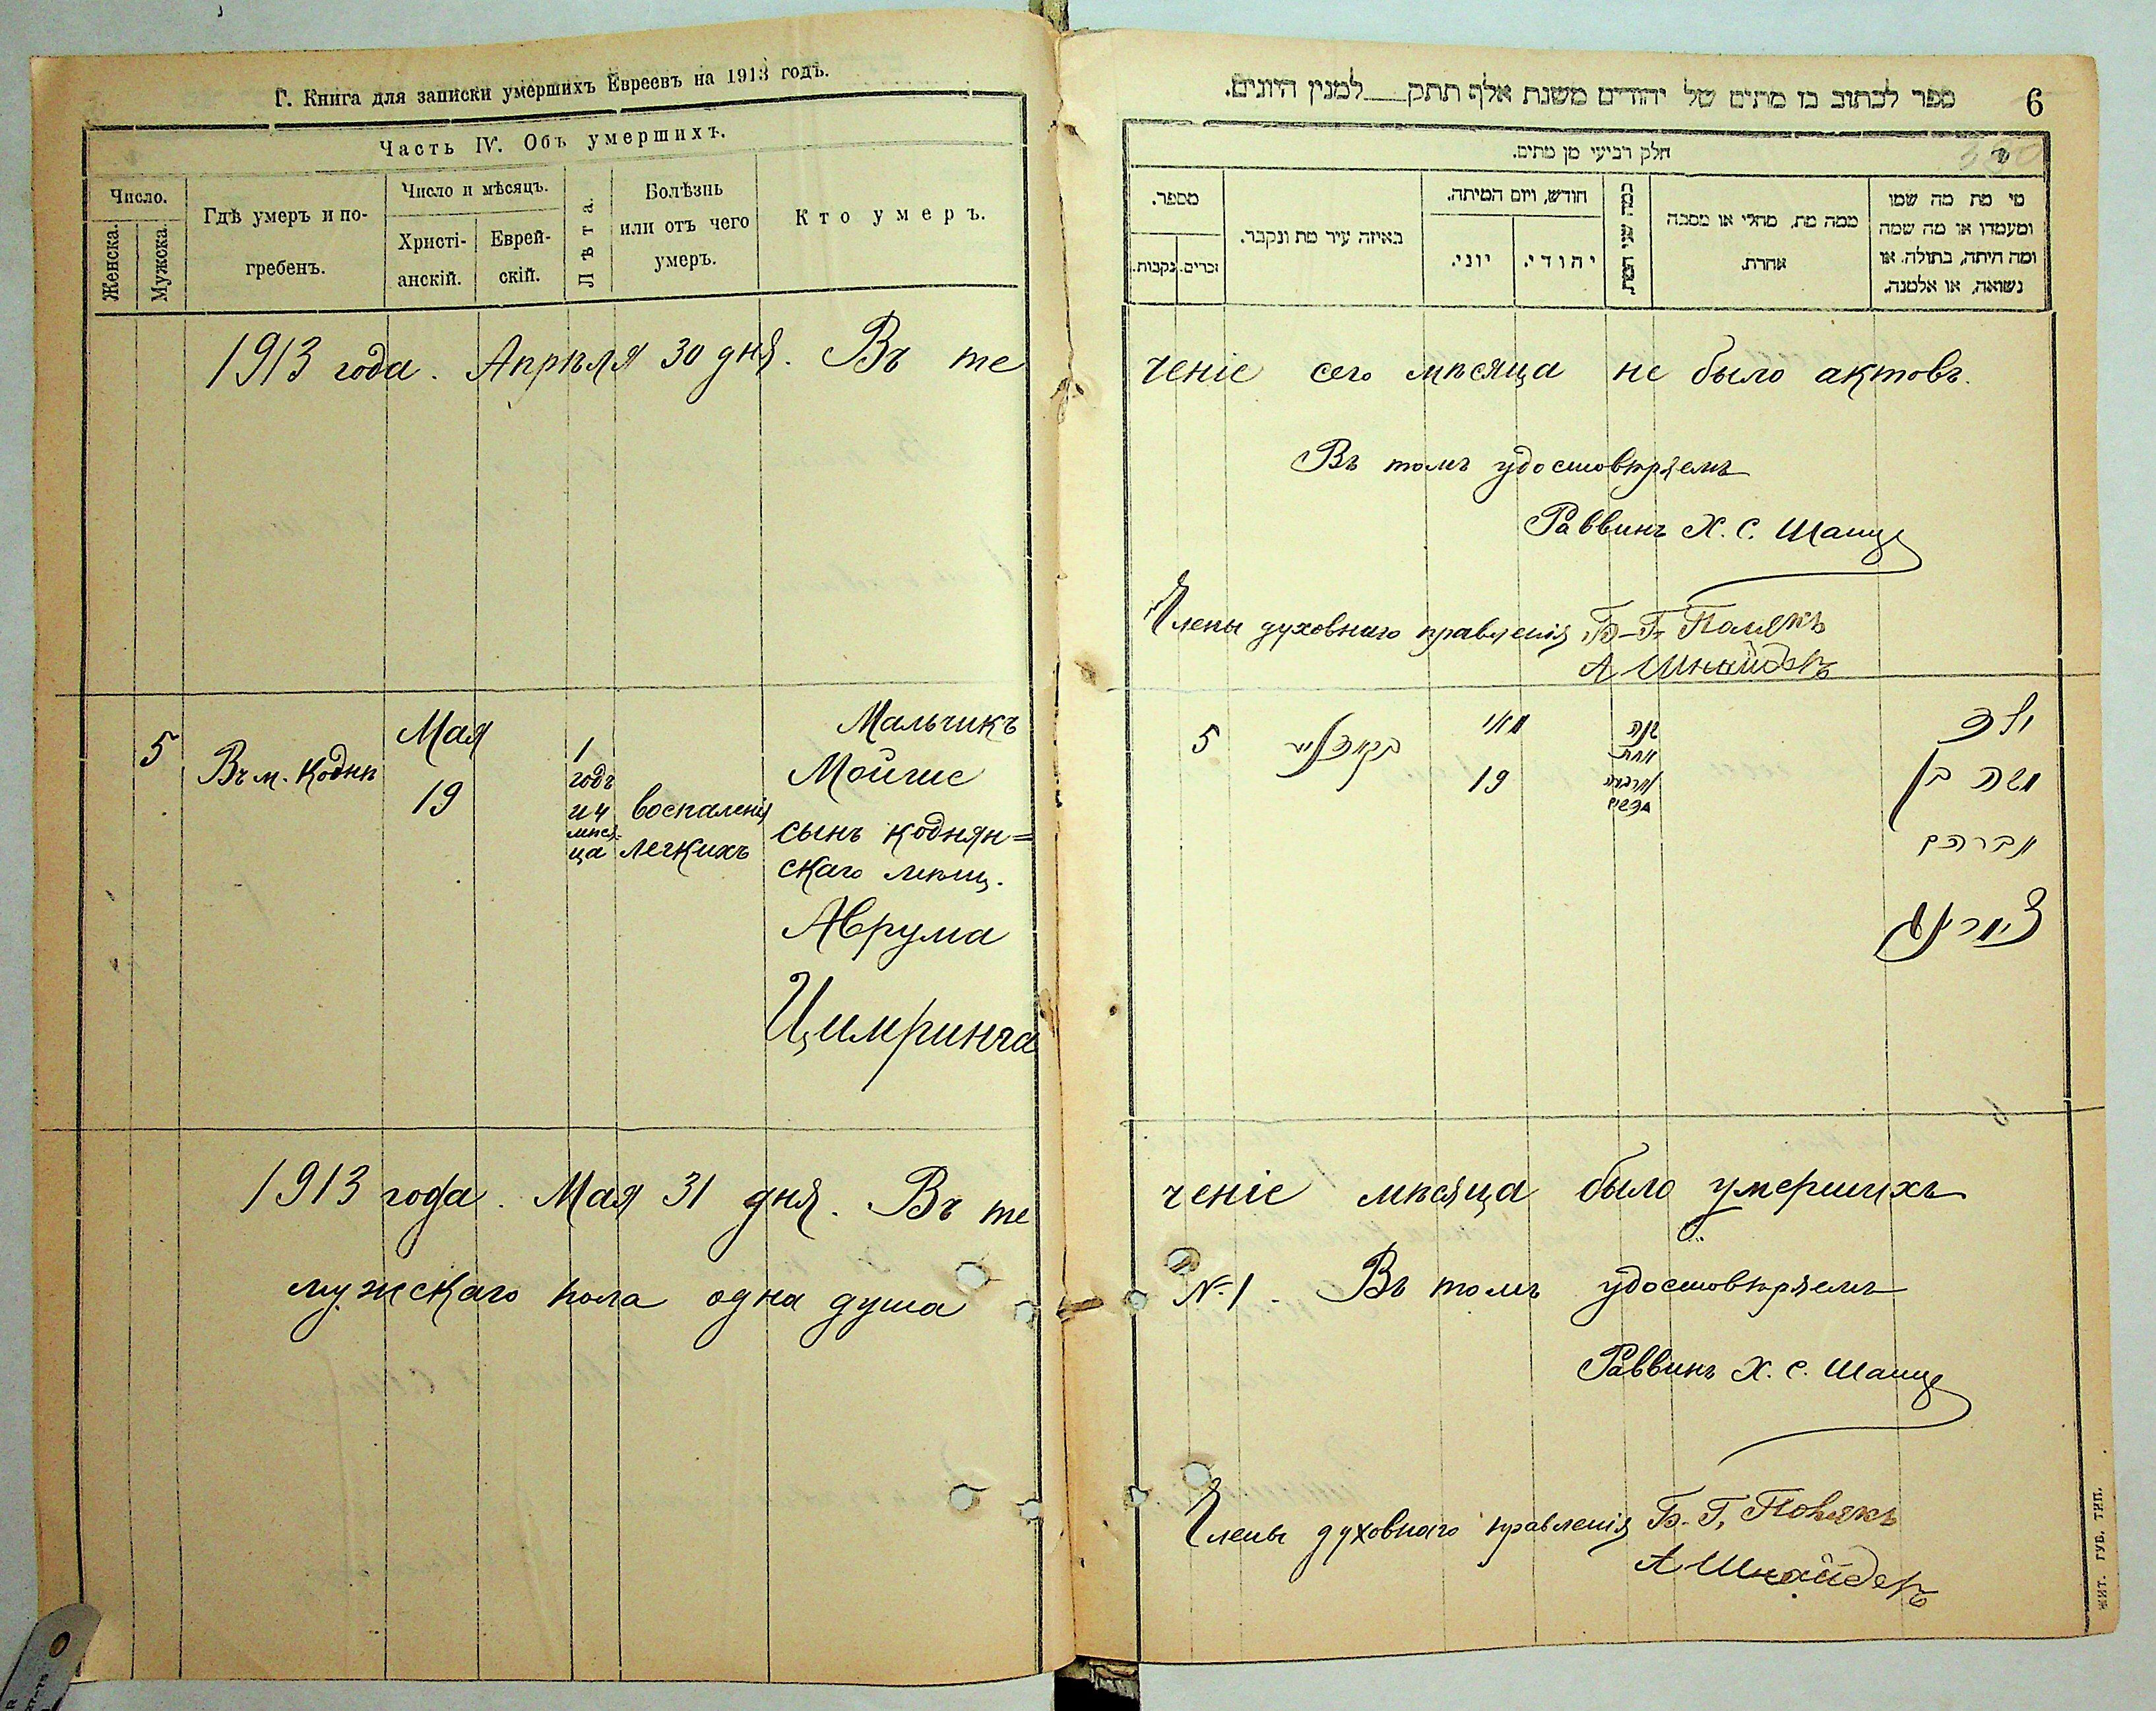 Г. Книга для записки умершихъ Евреевъ на 1913 годъ.
Часть IV. Объ умершихъ.
Число.
Женска.
Мужска.
Гдѣ умеръ и по-
гребенъ.
Число и мѣсяцъ.
Христі-
анскій.
Еврей-
скій.
Лѣта.
Болѣзнь
или отъ чего
умеръ.
Кто умеръ.
1913 года. Апрѣля 30 дня. Въ те
5
Въ м. Коднѣ
Мая
19
1
годъ
и 4
мѣся-
ца
воспаленія
легкихъ
Мальчикъ
Мойше
сынъ Коднян=
скаго мѣщ.
Аврума
Цимринга
1913 года. Мая 31 дня. Въ те
мужскаго пола одна душа
6
ספר לכתוב בו מתים של יהודים משנת אלף תתק למנין היונים.
חלק רביעי מן מתים.
מספר.
זכרים.
נקבות.
באיזה עיר מת ונקבר.
חודש, ויום המיתה.
יוני.
יהודי.
כמה שני המת.
ממה מת, מחלי או מסבה
אחרת.
מי מת מה שמו
ומעמדו או מה שמה
ומה היתה, בתולה, או
נשואה, או אלמנה.
ченіе сего мѣсяца не было актовъ.
Въ томъ удостовѣряемъ
Раввинъ Х. С. Шапиро
Члены духовнаго правленія Б-Г. Полякъ
А Шнайдеръ
5
מאי
19
שנה
אחת
וארבעה
חדשים
ילד
משה בן
אברהם
ченіе мѣсяца было умершихъ
№ 1. Въ томъ удостовѣряемъ
Раввинъ Х. С. Шапиро
Члены духовнаго правленія Б. Г. Полякъ
А Шнайдеръ
ЖИТ. ГУБ. ТИП.